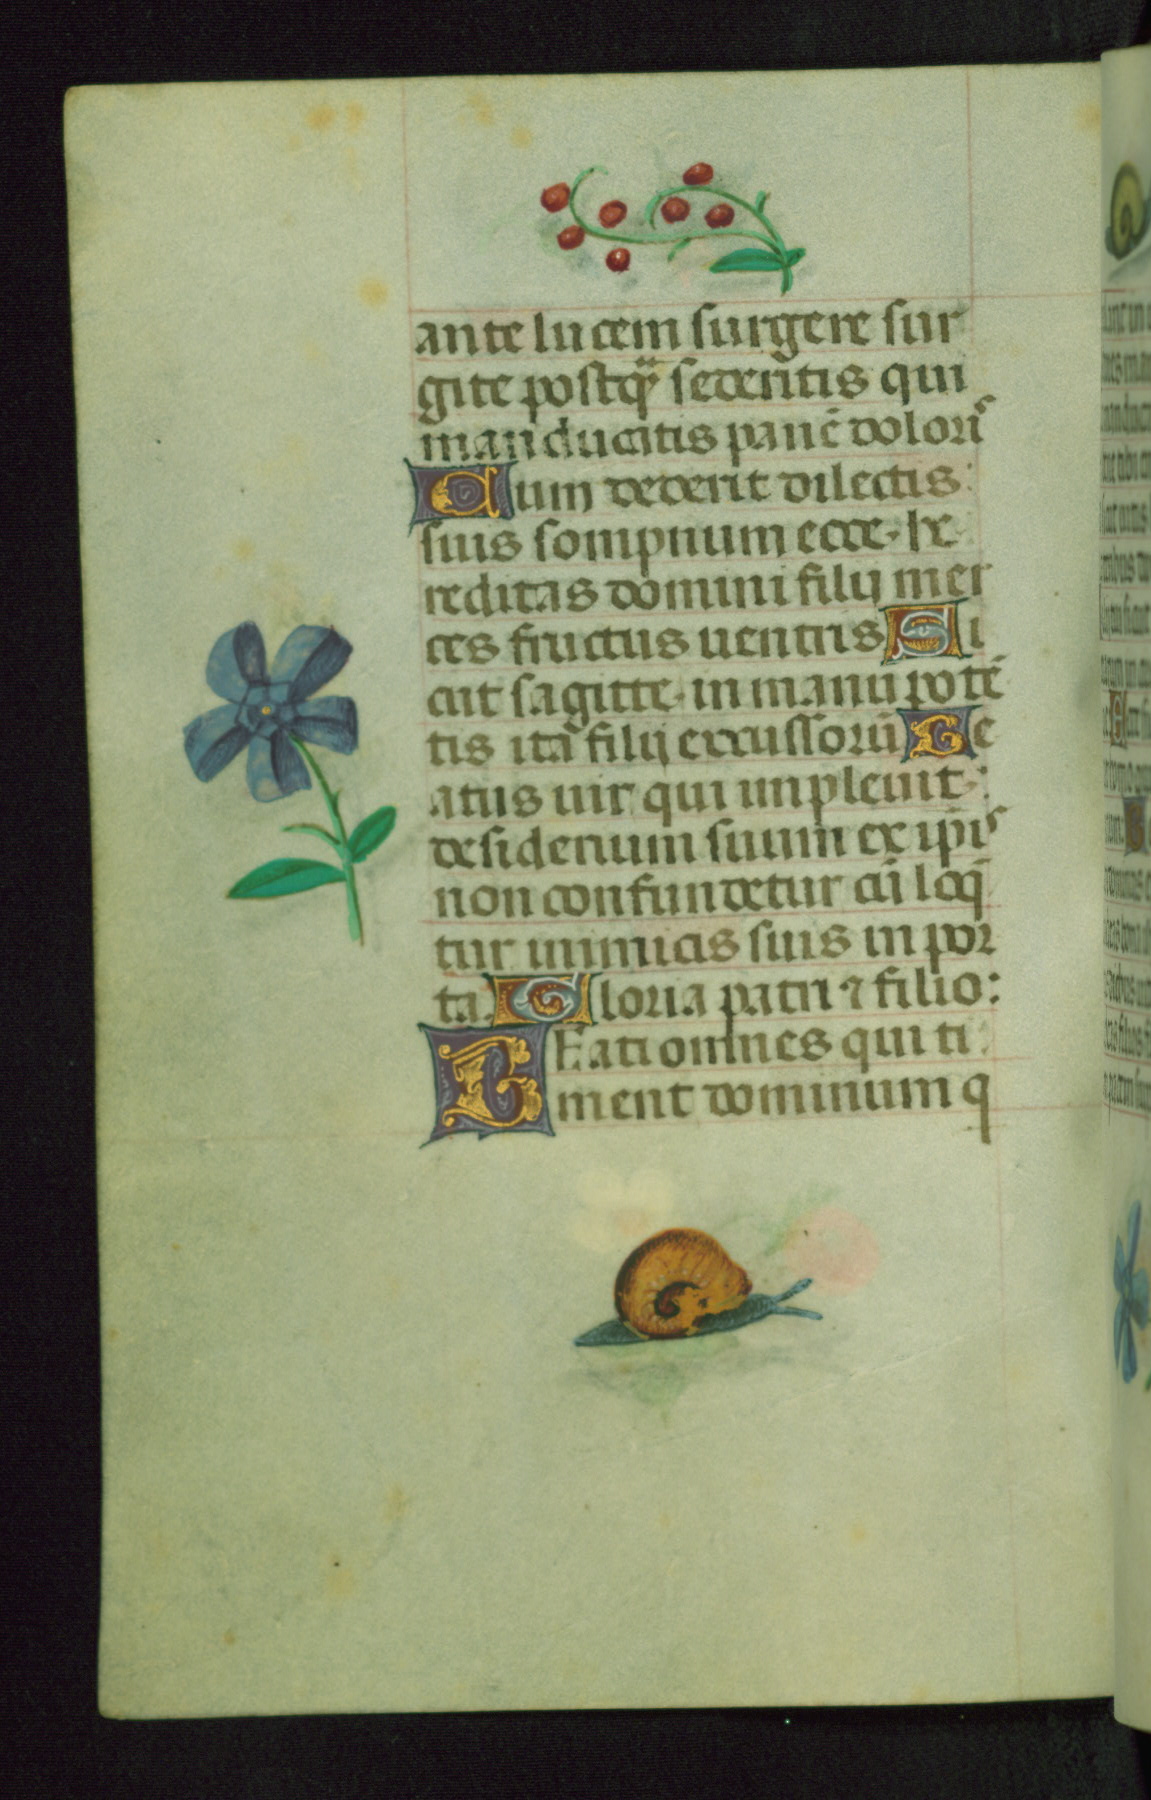 ante lucem surgere sur
gite postq̃ sederitis qui
manducatis panē doloris
Cum dederit dilectis
suis sompnum ecce he
reditas domini filij mer
ces fructus uentris Si
cut sagitte in manu potē
tis ita filij excussorū Be
atus uir qui impleuit
desiderium suum ex ip̄is
non confundetur cū loq̄
tur inimicis suis in por
ta. Gloria patri ⁊ filio:
BEati omnes qui ti
ment dominum q